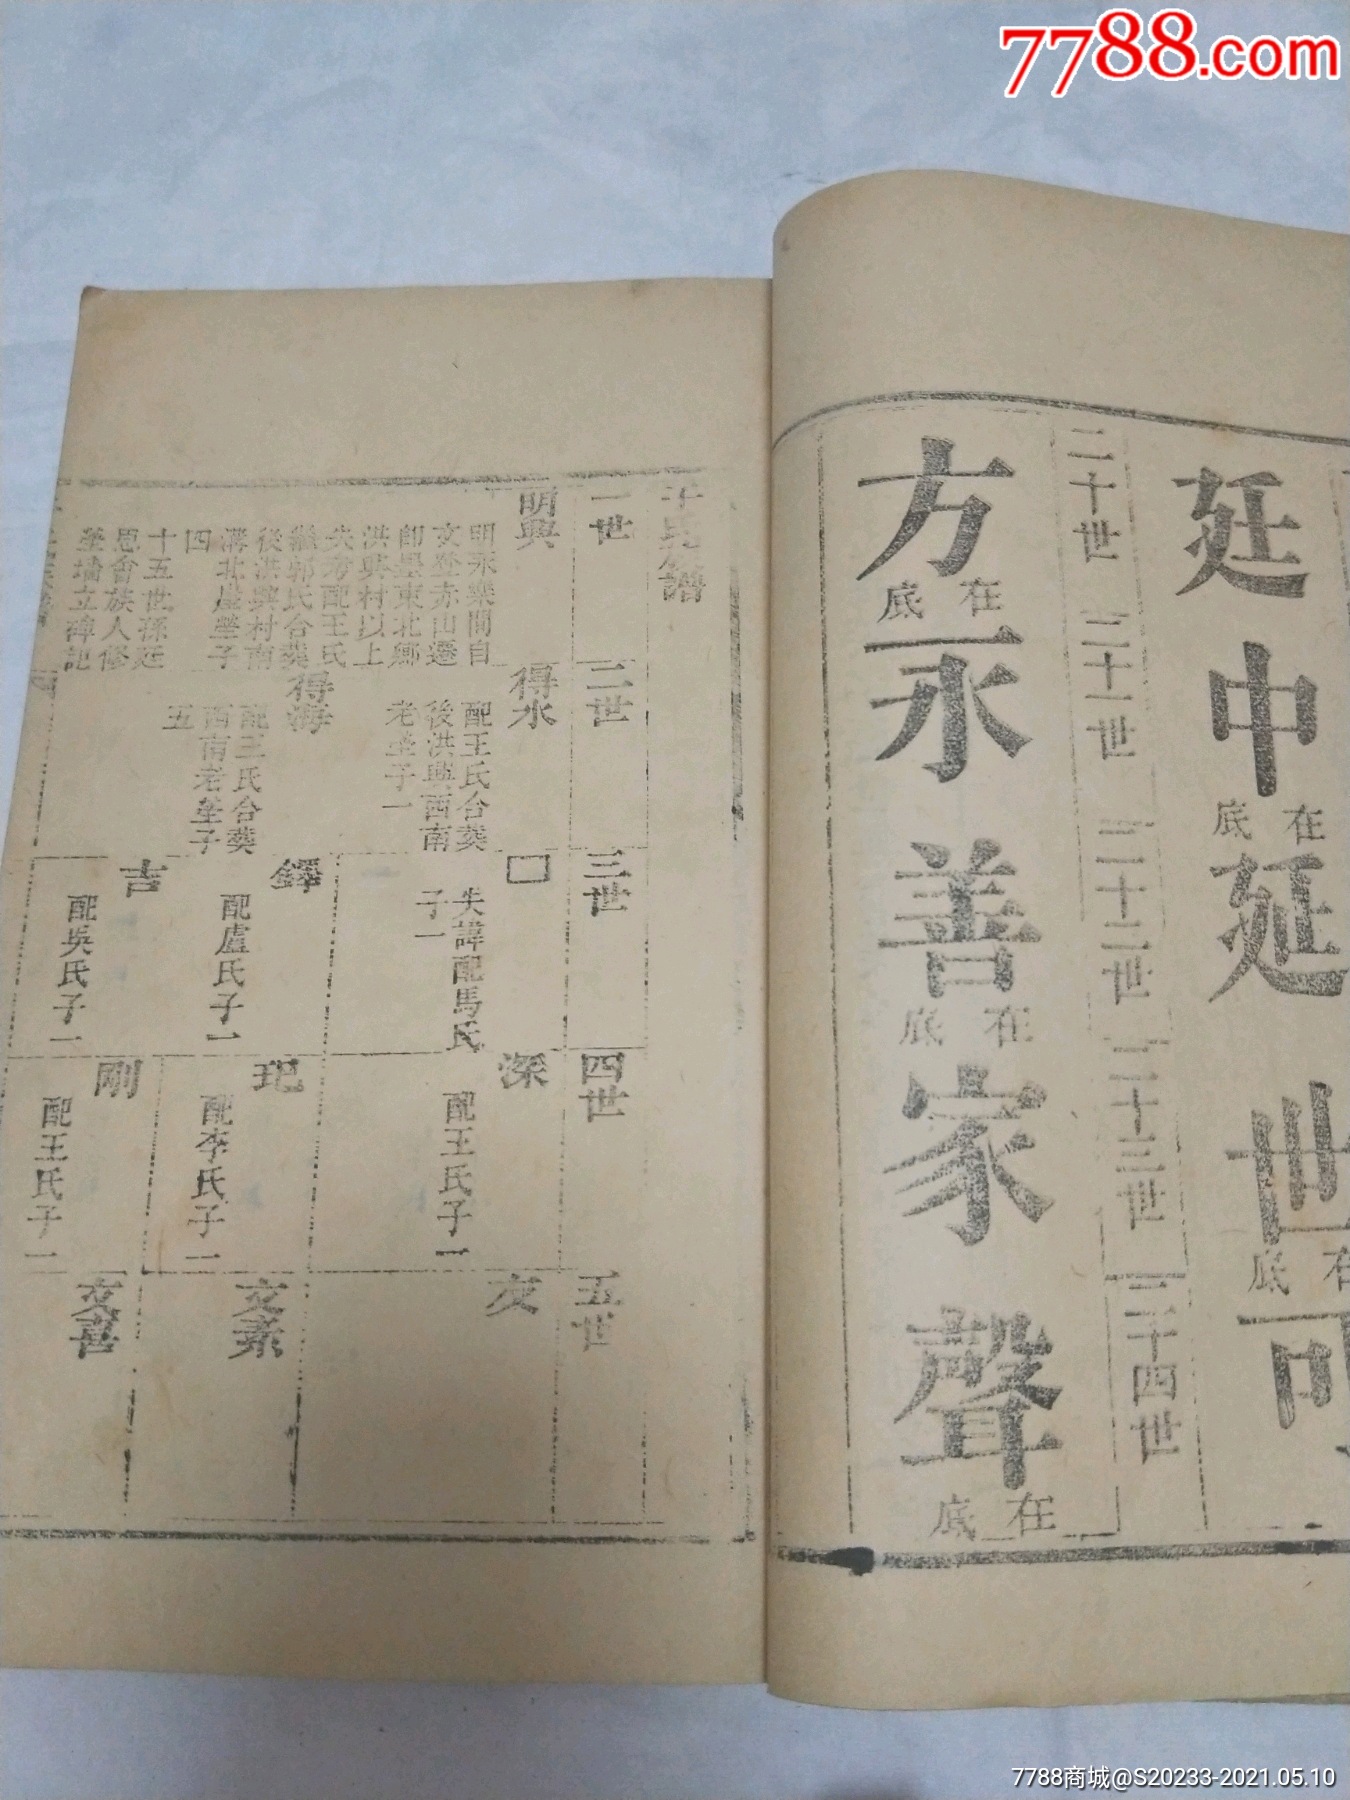 7788.com
廷
中
在底
延
世
在底
二十世
二十一世
二十二世
二十三世
二十四世
方
在底
永
善
在底
家
聲
在底
于氏譜
一世
二世
三世
四世
五世
明興
明永樂間自
文登赤山遷
即墨東北鄉
洪興村以上
失考配王氏
繼郭氏合葬
後洪興村南
溝北崖塋子
四
十五世孫廷
恩會族人修
塋墻立碑記
得水
配王氏合葬
後洪興西南
老塋子一
得海
配王氏合葬
西南老塋子
五
失諱配馬氏
子一
鐸
配盧氏子一
吉
配吳氏子一
深
配王氏子一
玘
配李氏子一
剛
配王氏子一
友
文素
文喜
7788商城@S20233-2021.05.10